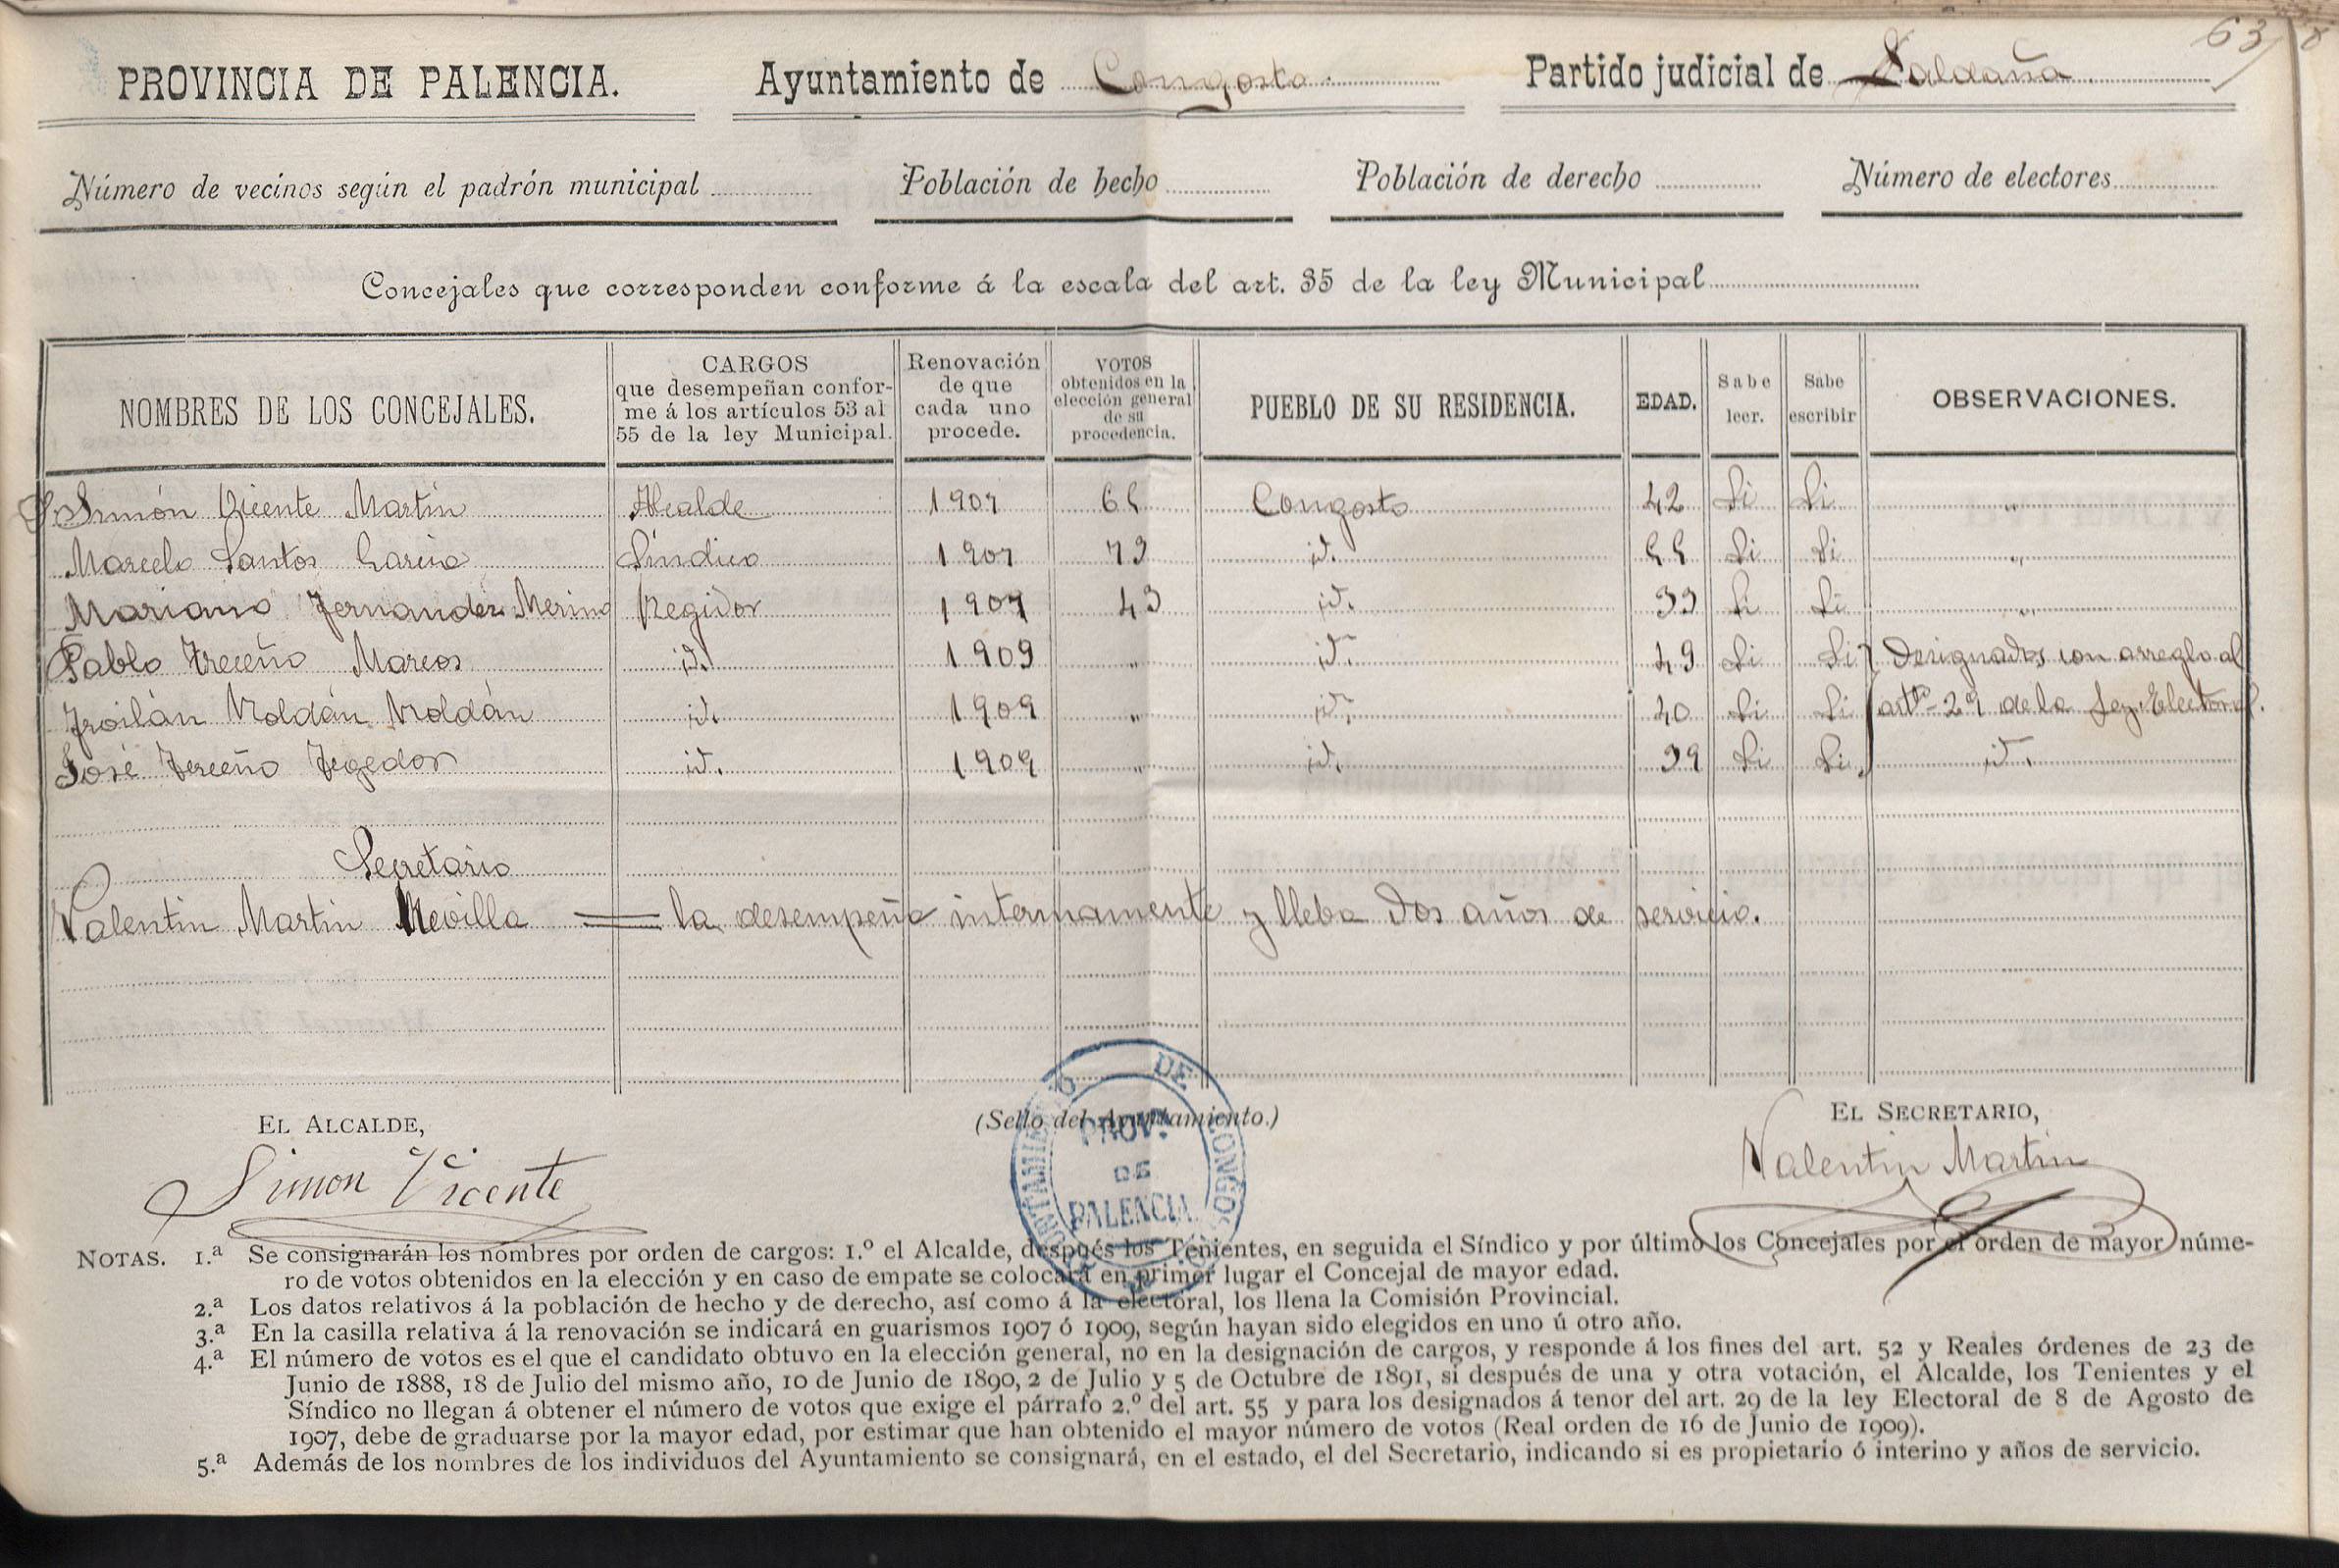 63
PROVINCIA DE PALENCIA. Ayuntamiento de Congosto Partido judicial de Saldaña
Número de vecinos según el padrón municipal Población de hecho Población de derecho Número de electores
Concejales que corresponden conforme á la escala del art. 35 de la ley Municipal
NOMBRES DE LOS CONCEJALES. CARGOS que desempeñan confor-me á los artículos 53 al 55 de la ley Municipal. Renovación de que cada uno procede. VOTOS obtenidos en la elección general de su procedencia. PUEBLO DE SU RESIDENCIA. EDAD. Sabe leer. Sabe escribir OBSERVACIONES.
Simón Vicente Martin Alcalde 1907 65 Congosto 42 Si Si "
Marcelo Santos Garcia Síndico 1907 73 id. 55 Si Si "
Mariano Fernandez Merino Regidor 1907 43 id. 33 Si Si "
Pablo Treceño Marcos id. 1909 " id. 49 Si Si Designados con arreglo al
Froilán Roldán Roldán id. 1909 " id. 40 Si Si artº 29 de la Ley Electoral.
José Treceño Tegedor id. 1909 " id. 39 Si Si id.
Secretario
Valentin Martin Revilla = la desempeña interinamente y lleba dos años de servicio.
EL ALCALDE, (Sello del Ayuntamiento.) EL SECRETARIO,
Simon Vicente Valentin Martin
AYUNTAMIENTO DE CONGOSTO
PROVª DE PALENCIA
NOTAS. 1.ª Se consignarán los nombres por orden de cargos: 1.º el Alcalde, después los Tenientes, en seguida el Síndico y por último los Concejales por el orden de mayor núme-
ro de votos obtenidos en la elección y en caso de empate se colocará en primer lugar el Concejal de mayor edad.
2.ª Los datos relativos á la población de hecho y de derecho, así como á la electoral, los llena la Comisión Provincial.
3.ª En la casilla relativa á la renovación se indicará en guarismos 1907 ó 1909, según hayan sido elegidos en uno ú otro año.
4.ª El número de votos es el que el candidato obtuvo en la elección general, no en la designación de cargos, y responde á los fines del art. 52 y Reales órdenes de 23 de
Junio de 1888, 18 de Julio del mismo año, 10 de Junio de 1890, 2 de Julio y 5 de Octubre de 1891, si después de una y otra votación, el Alcalde, los Tenientes y el
Síndico no llegan á obtener el número de votos que exige el párrafo 2.º del art. 55 y para los designados á tenor del art. 29 de la ley Electoral de 8 de Agosto de
1907, debe de graduarse por la mayor edad, por estimar que han obtenido el mayor número de votos (Real orden de 16 de Junio de 1909).
5.ª Además de los nombres de los individuos del Ayuntamiento se consignará, en el estado, el del Secretario, indicando si es propietario ó interino y años de servicio.